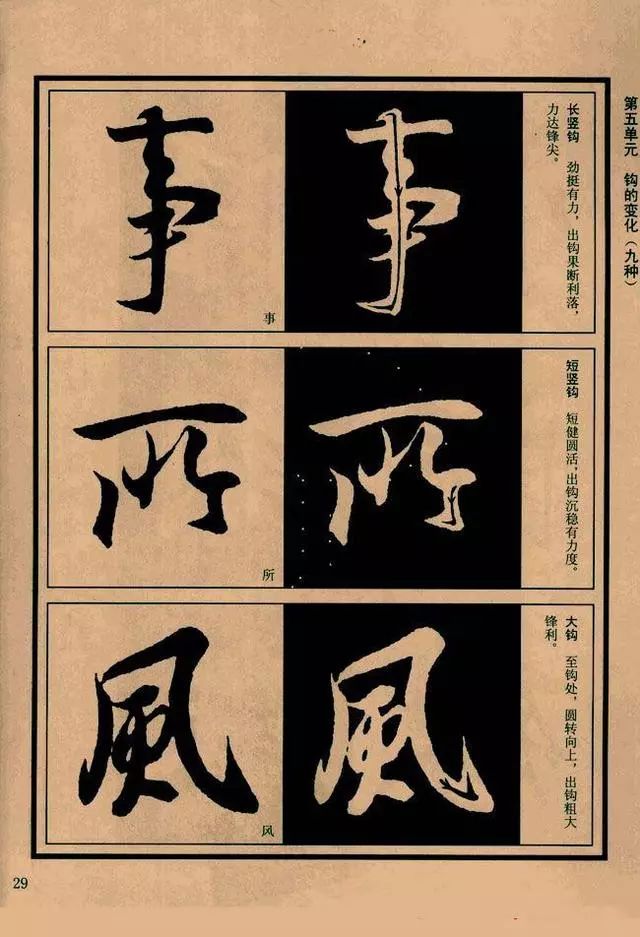 第五单元　钩的变化（九种）
长竖钩　劲挺有力，出钩果断利落，
力达锋尖。
事
事
事
短竖钩　短健圆活，出钩沉稳有力度。
所
所
所
大钩　至钩处，圆转向上，出钩粗大
锋利。
風
風
风
29